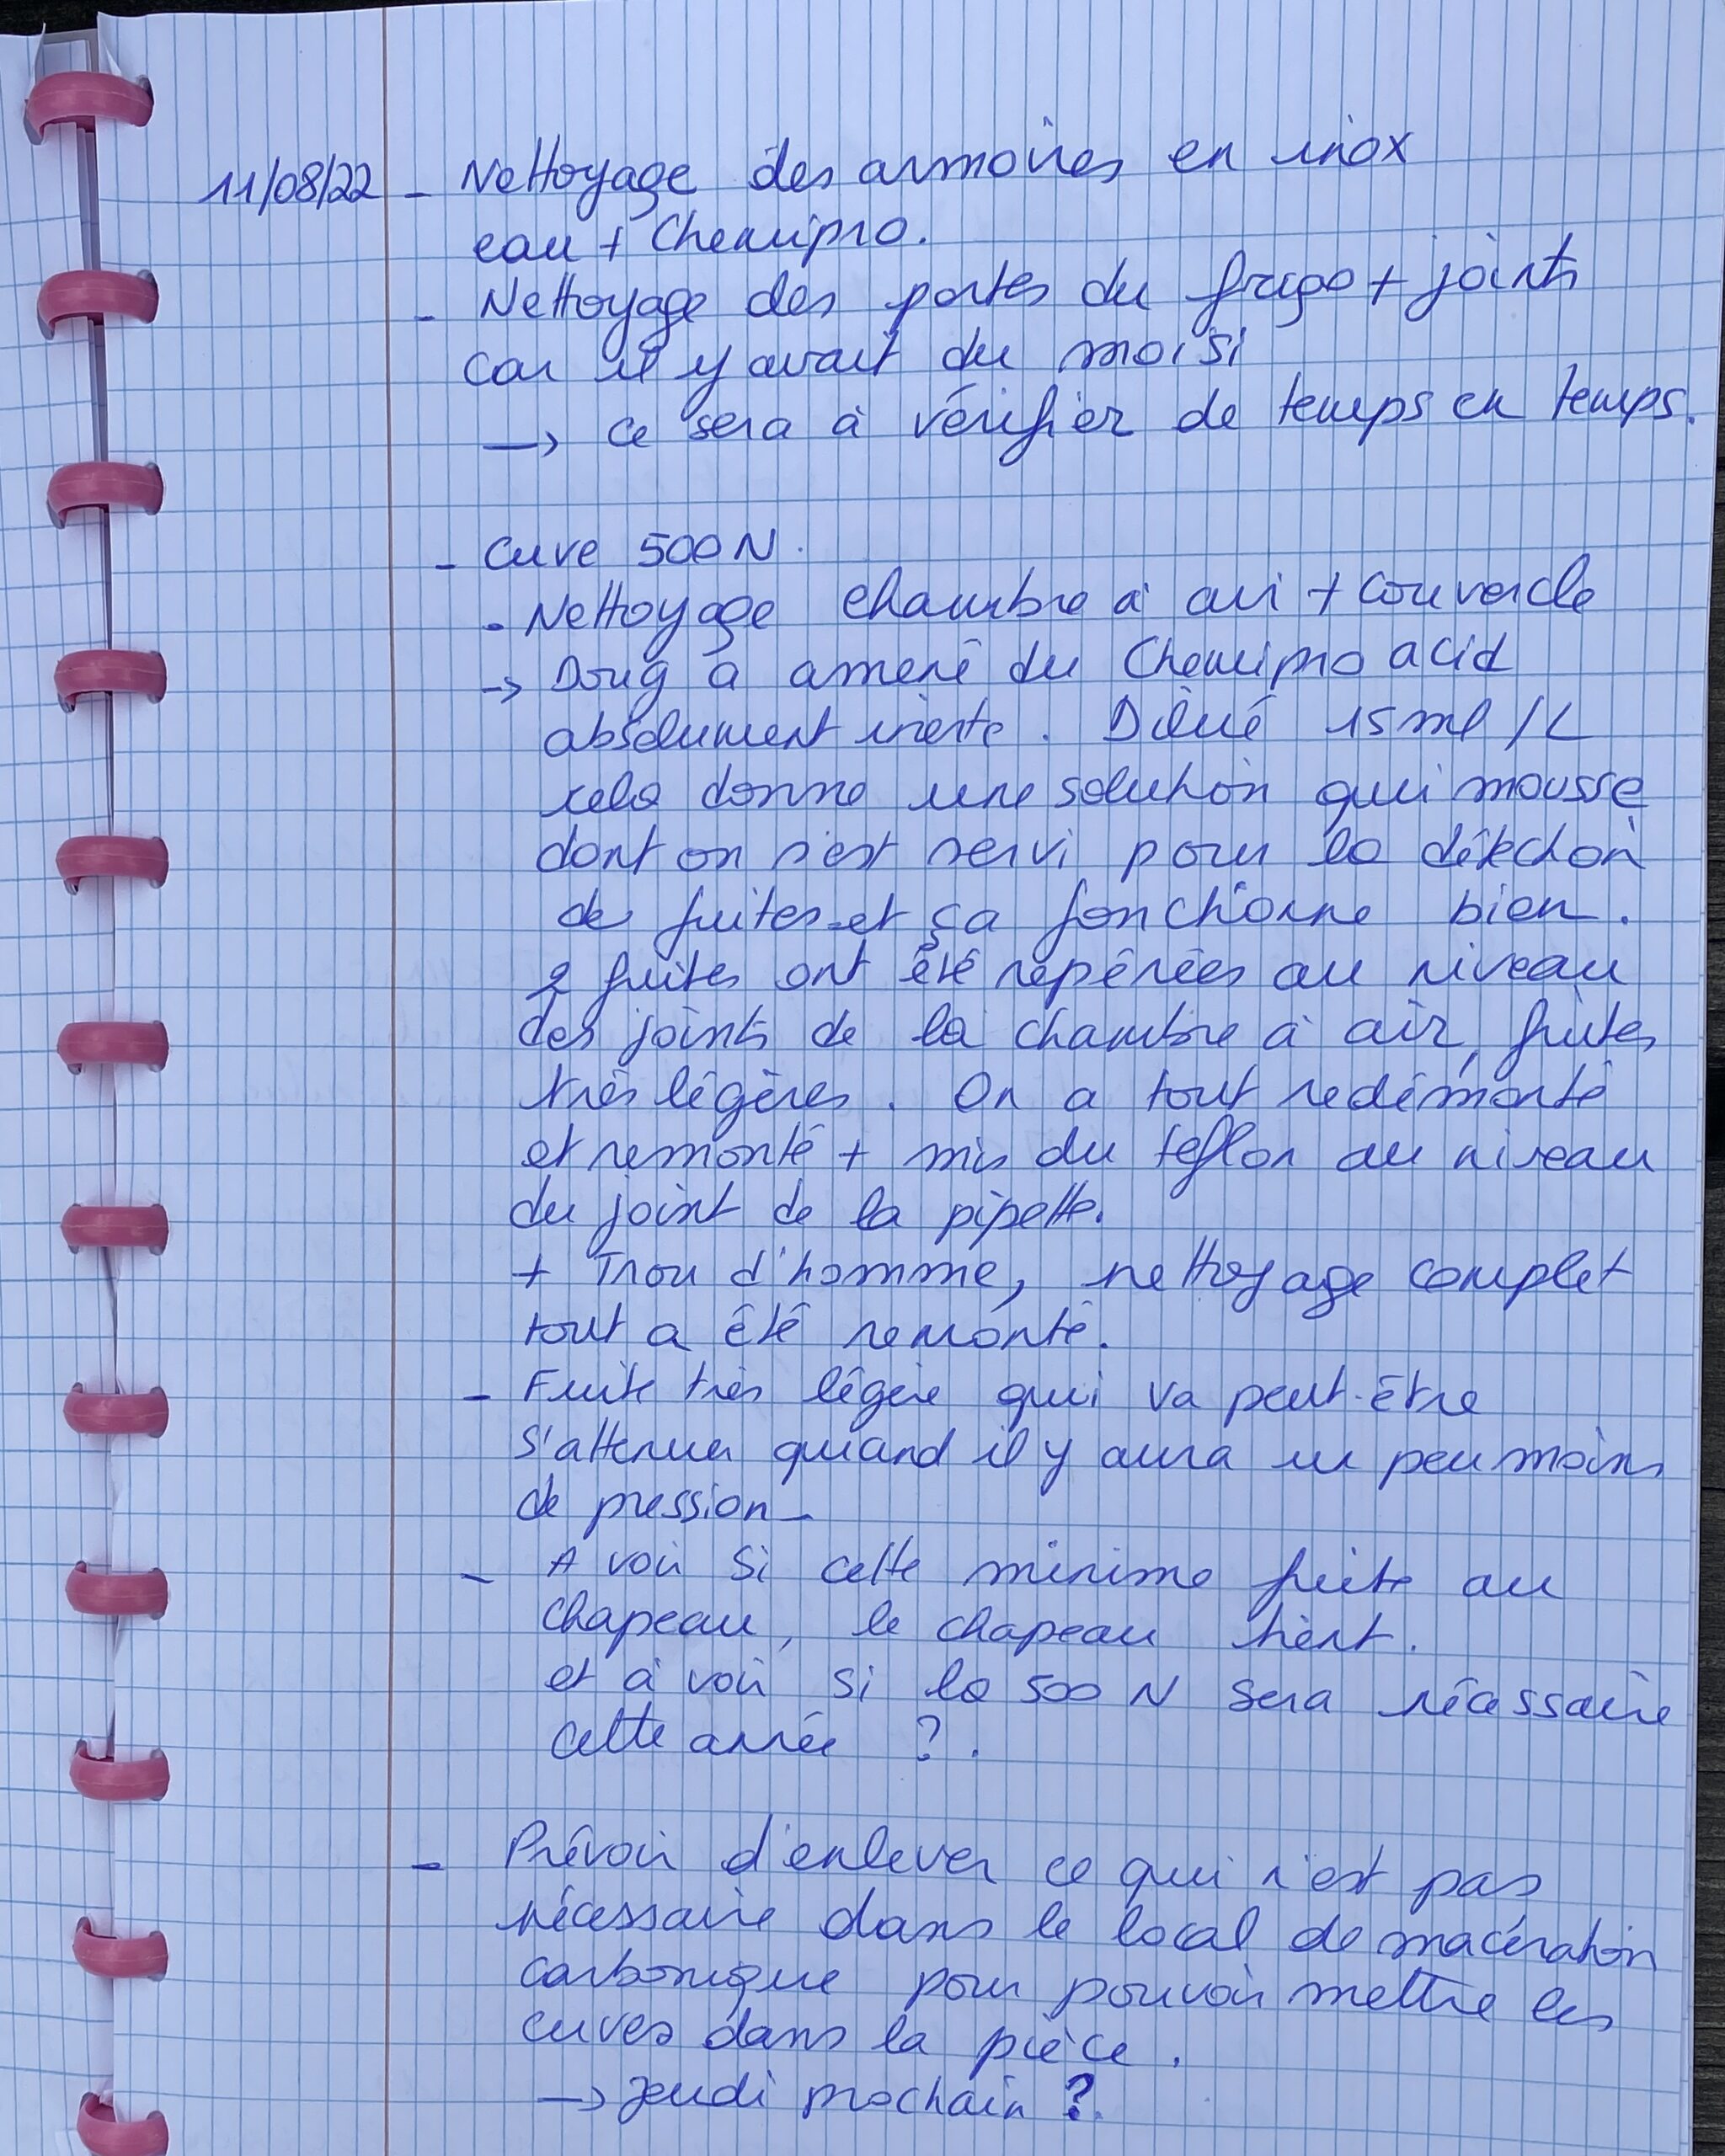 11/08/22 - Nettoyage des armoires en inox
eau + Chemipro.
- Nettoyage des portes du frigo + joints
car il y avait du moisi
→ ce sera à vérifier de temps en temps.
- Cuve 500N.
- Nettoyage chambre à air + couvercle
→ Doug a amené du Chemipro acid
absolument inerte. Dilué 15ml/L
cela donne une solution qui mousse
dont on s'est servi pour la détection
de fuites et ça fonctionne bien.
2 fuites ont été repérées au niveau
des joints de la chambre à air, fuites
très légères. On a tout redémonté
et remonté + mis du teflon au niveau
du joint de la pipette.
+ Trou d'homme, nettoyage complet
tout a été remonté.
- Fuite très légère qui va peut-être
s'attenuer quand il y aura un peu moins
de pression -
- A voir si cette minime fuite au
chapeau, le chapeau tient.
et à voir si la 500 N sera nécessaire
cette année ?.
- Prévoir d'enlever ce qui n'est pas
nécessaire dans le local de macération
carbonique pour pouvoir mettre les
cuves dans la pièce.
→ jeudi prochain ?.